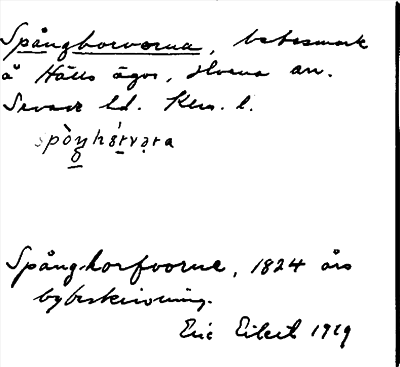 Spånghorvorna, betesmark
å Hälls ägor, Norra an.
Sevede hd. Klm. l.
spòŋhórvəra
Spånghorfvorne, 1824 års
bybeskrivning.
Eric Elert 1919